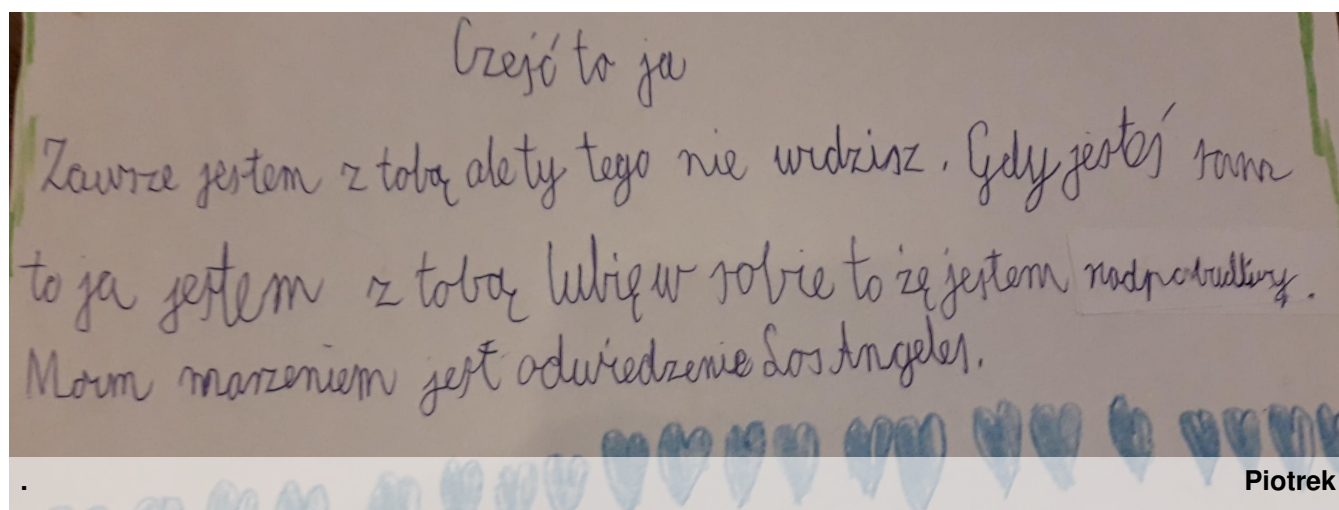 Cześć to ja
Zawsze jestem z tobą ale ty tego nie widzisz. Gdy jesteś sam
to ja jestem z tobą lubię w sobie to żę jestem nadpobudliwy.
Moim marzeniem jest odwiedzenie Los Angeles.
. Piotrek